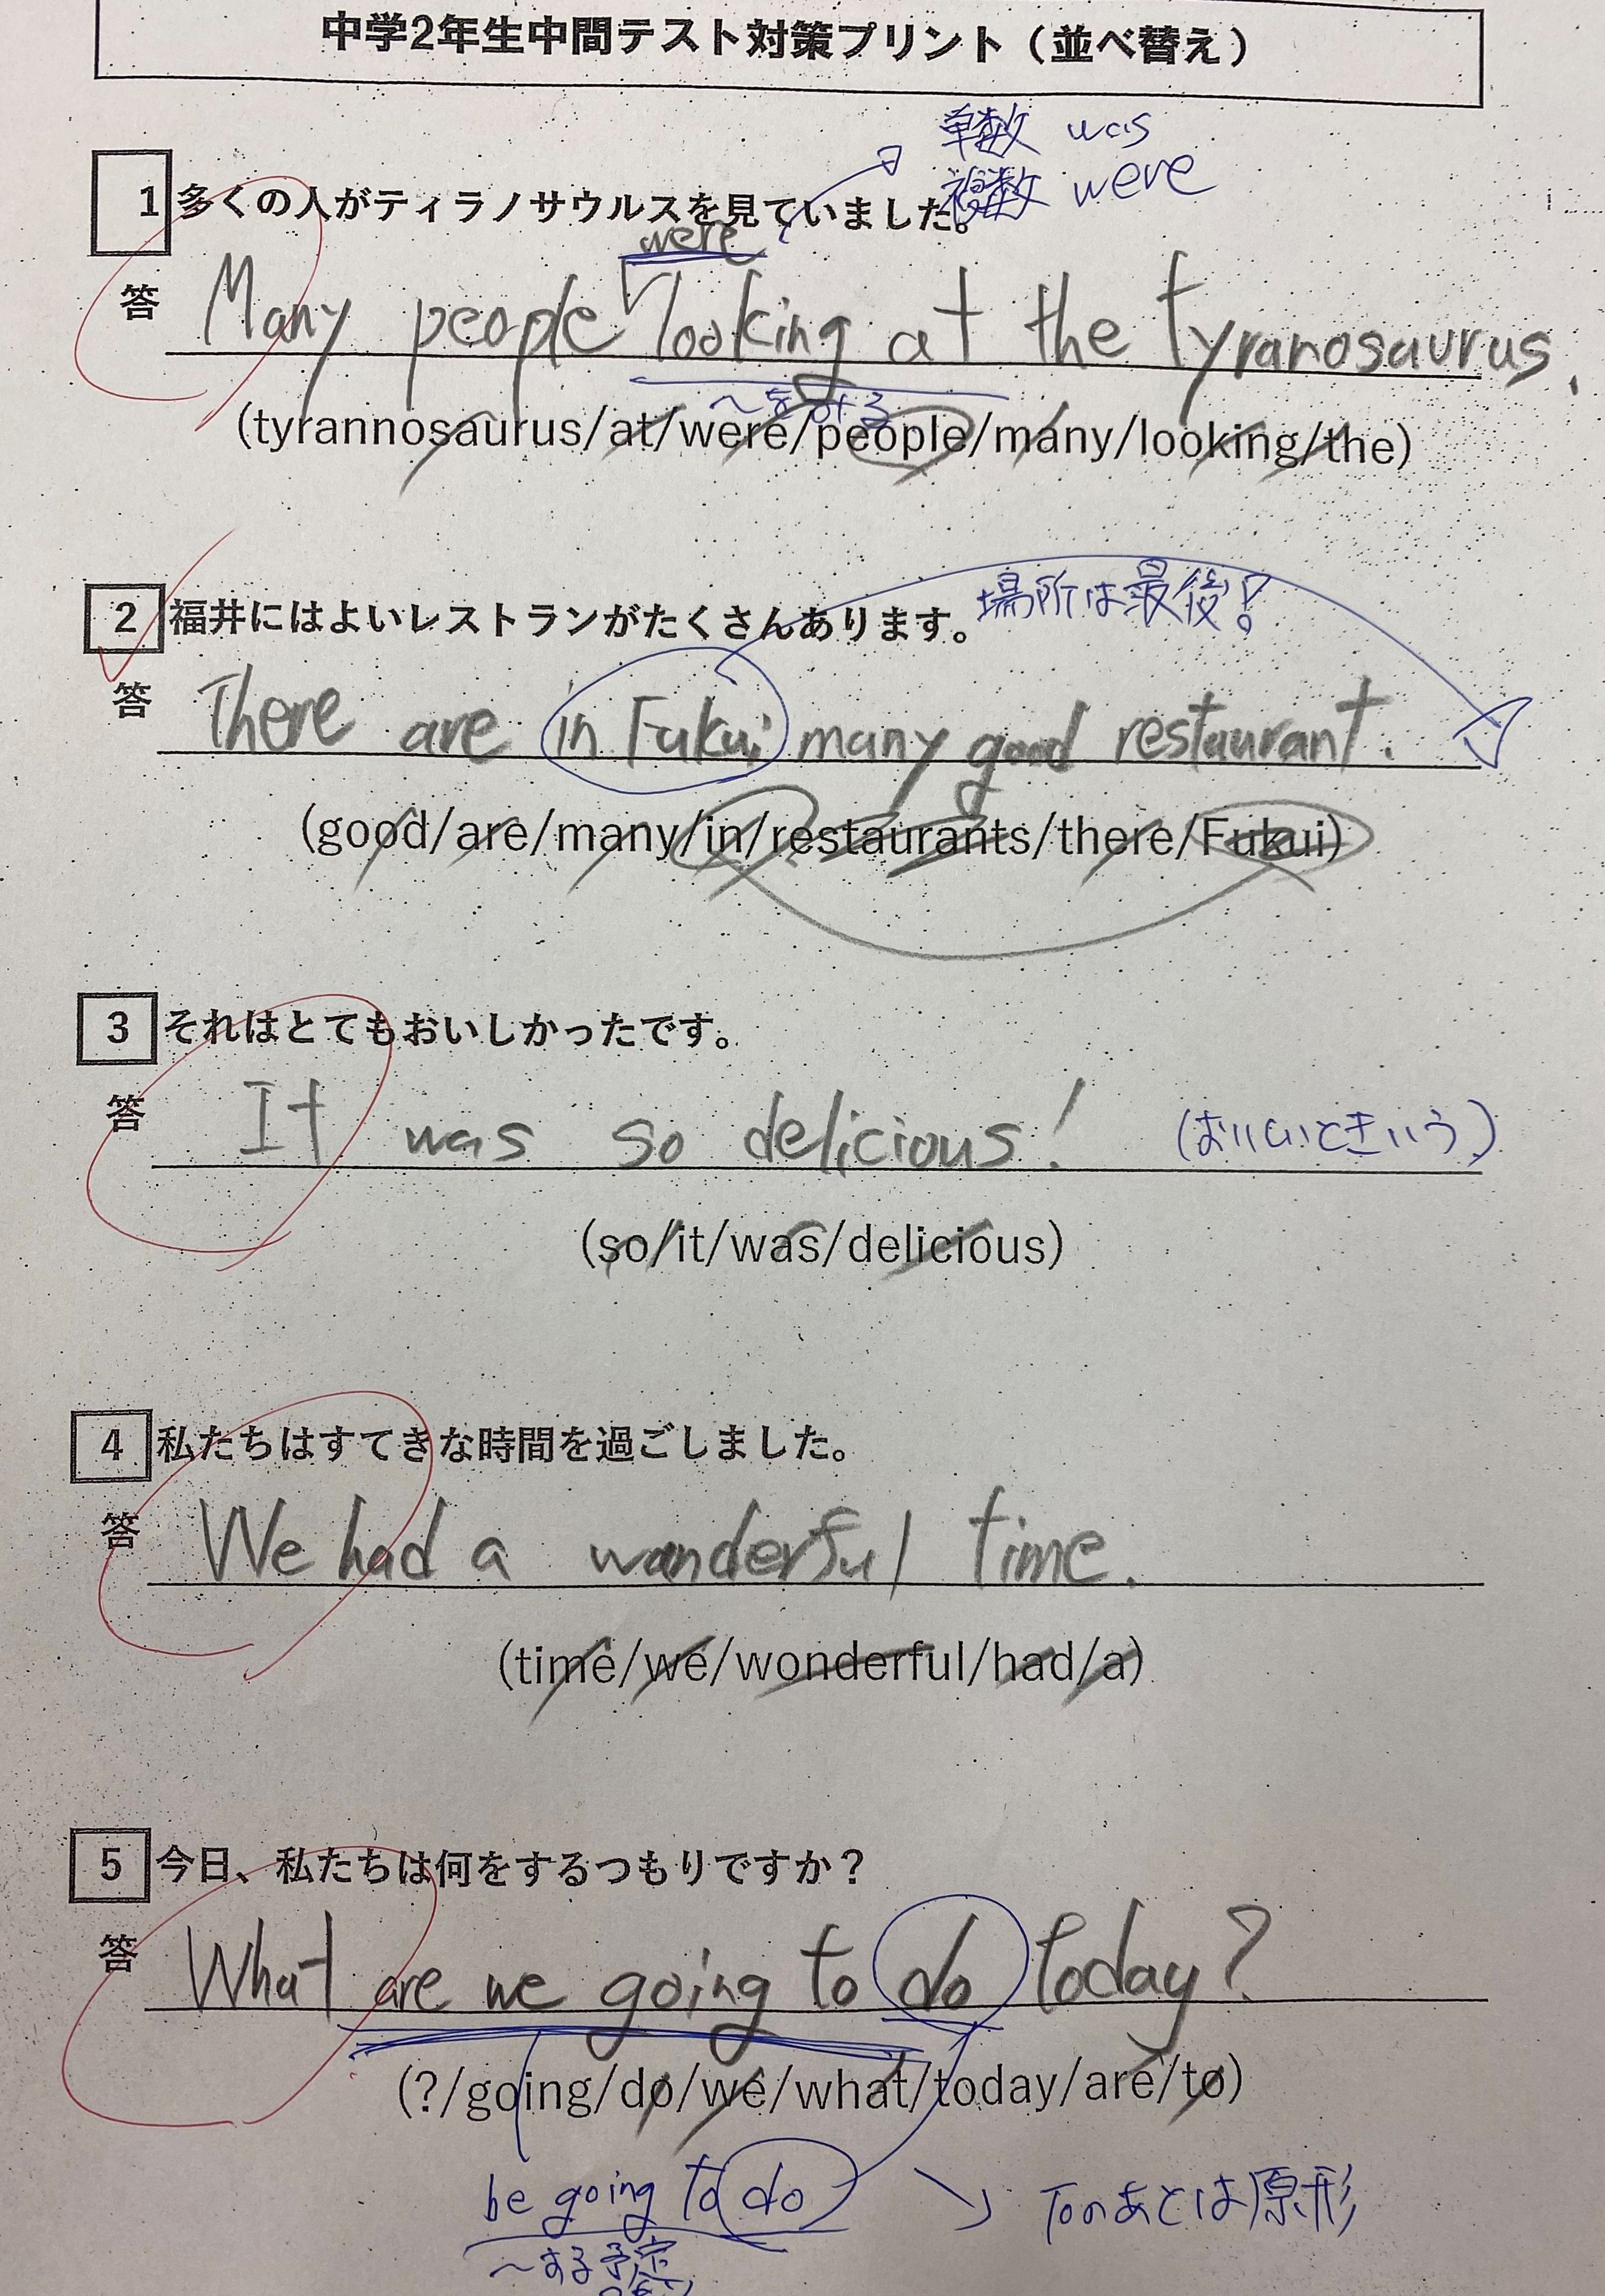 中学2年生中間テスト対策プリント（並べ替え）
単数 was
複数 were
1 多くの人がティラノサウルスを見ていました。
were
答 Many people looking at the tyranosaurus.
～をみる
(tyrannosaurus/at/were/people/many/looking/the)
2 福井にはよいレストランがたくさんあります。 場所は最後！
答 There are in Fukui many good restaurant.
(good/are/many/in/restaurants/there/Fukui)
3 それはとてもおいしかったです。
答 It was so delicious! (おいしいときいう)
(so/it/was/delicious)
4 私たちはすてきな時間を過ごしました。
答 We had a wanderful time.
(time/we/wonderful/had/a)
5 今日、私たちは何をするつもりですか？
答 What are we going to do today?
(?/going/do/we/what/today/are/to)
be going to do ↘ toのあとは原形
～する予定